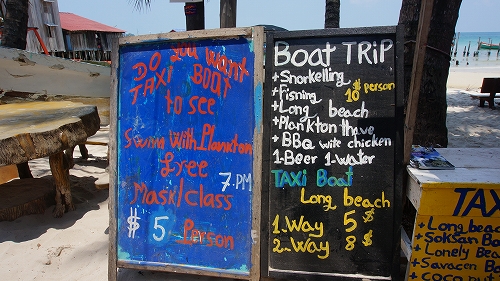 DO you want
TAXI BOAT
to see
Swim with Plankton
free
Mask/class
7.PM
$ 5 Person
BoaT TRiP
+Snorkelling
+Fishing 10$ person
+Long beach
+Plankton thave
+BBQ wite chicken
1-Beer 1-water
TAXi BoaT
Long beach
1.Way 5$
2-Way 8$
TAX
Long bea
+SokSan Ba
+Lonely Bea
+Saracen Ba
+coco nut